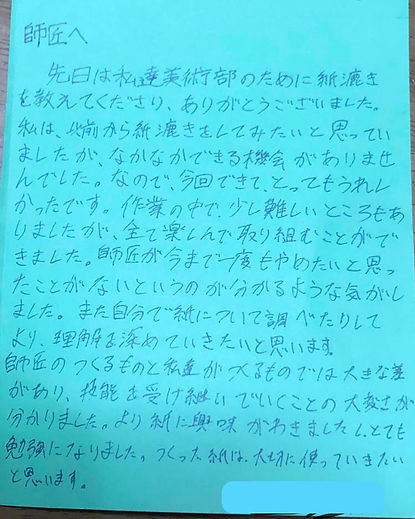 師匠へ
先日は私達美術部のために紙漉き
を教えてくださり、ありがとうございました。
私は、以前から紙漉きをしてみたいと思ってい
ましたが、なかなかできる機会がありませ
んでした。なので、今回できて、とってもうれし
かったです。作業の中で、少し難しいところもあ
りましたが、全て楽しんで取り組むことがで
きました。師匠が今まで一度もやめたいと思っ
たことがないというのが分かるような気がし
ました。また自分で紙について調べたりして
より、理解を深めていきたいと思います。
師匠のつくるものと私達がつくるものでは大きな差
があり、技能を受け継いでいくことの大変さが
分かりました。より紙に興味がわきましたし、とても
勉強になりました。つくった紙は、大切に使っていきたい
と思います。